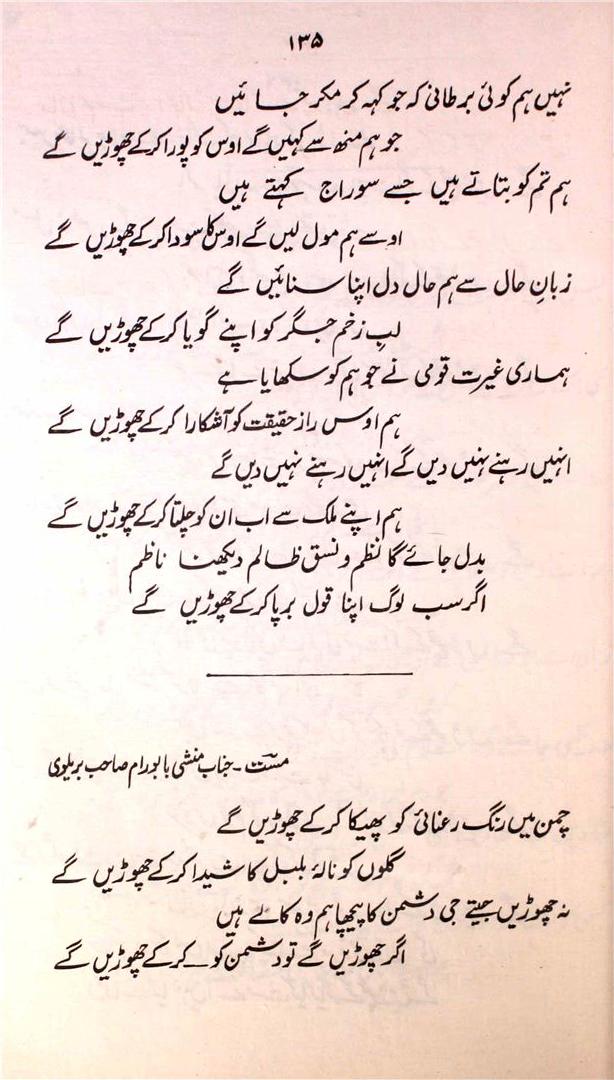 ۱۳۵
نہیں ہم کوئی برطانی کہ جو کہہ کر مکر جائیں
جو ہم منھ سے کہیں گے اوس کو پورا کرکے چھوڑیں گے
ہم تم کو بتاتے ہیں جسے سوراج کہتے ہیں
اوسے ہم مول لیں گے اوس کا سودا کرکے چھوڑیں گے
زبانِ حال سے ہم حال دل اپنا سنائیں گے
لبِ زخم جگر کو اپنے گویا کرکے چھوڑیں گے
ہماری غیرت قومی نے جو ہم کو سکھایا ہے
ہم اوس راز حقیقت کو آشکارا کرکے چھوڑیں گے
انہیں رہنے نہیں دیں گے انہیں رہنے نہیں دیں گے
ہم اپنے ملک سے اب ان کو چلتا کرکے چھوڑیں گے
بدل جائے گا نظم و نسق ظالم دیکھنا ناظم
اگر سب لوگ اپنا قول برپا کرکے چھوڑیں گے
مست ۔ جناب منشی بابو رام صاحب بریلوی
چمن میں رنگ رعنائی کو پھیکا کرکے چھوڑیں گے
گلوں کو نالۂ بلبل کا شیدا کرکے چھوڑیں گے
نہ چھوڑیں جیتے جی دشمن کا پیچھا ہم وہ کالے ہیں
اگر چھوڑیں گے تو دشمن کو ــ کرکے چھوڑیں گے